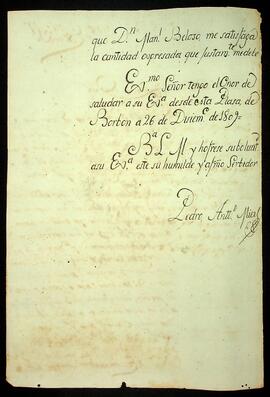 que D.n Man.l Beloso, me satisfaga
la cantidad expresada que justam.te me debe
Ex.mo Señor tengo el Onor de
saludar a su Ex.a desde esta Plasa de
Boston a 26 de Disiem.e de 1809,,
B.a L. M y hofrese su bolunt.
asu Ex.a este su humilde y afmo Serbidor
Pedro Ant.o